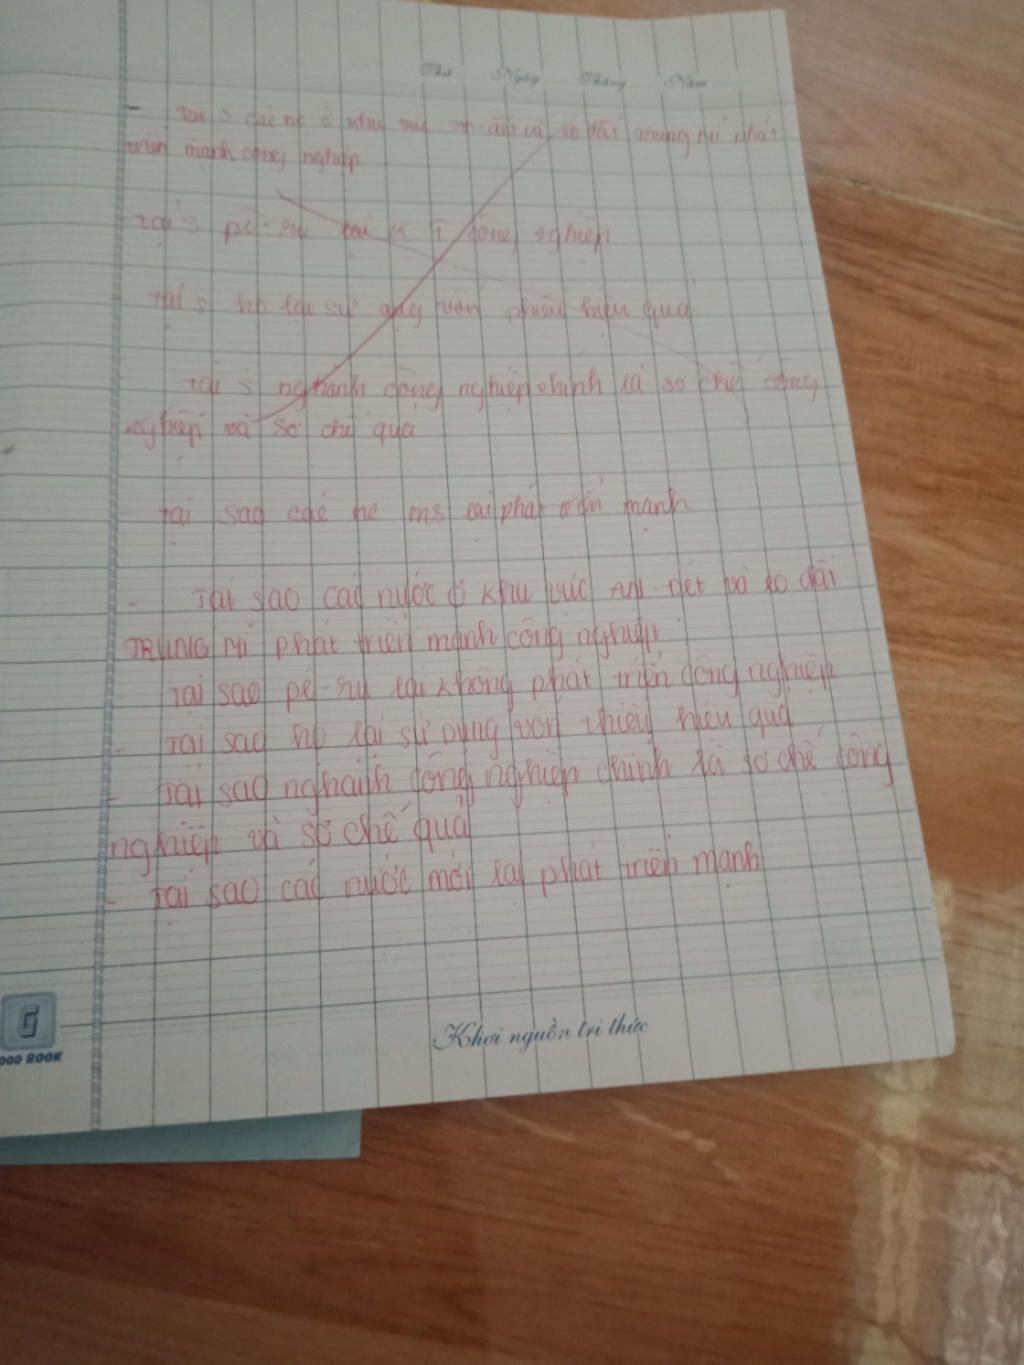 Thứ Ngày Tháng Năm
- Tại s các nc ở và eo đất trung mĩ phát
triển mạnh công nghiệp
tại s pê-ru công nghiệp
tại s họ lại sử vốn hiệu quả
tại s nghành công nghiệp chính là sơ chế công
nghiệp và sơ chế quả
tại sao các nc ms lại phát triển mạnh
- Tại sao các nước ở khu vức An-đét và eo đất
TRUNG Mĩ phát triển mạnh công nghiệp
Tại sao pê-ru lại không phát triển công nghiệp
- Tại sao họ lại sử dụng vốn thiếu hiệu quả
- Tại sao nghành công nghiệp chính là sơ chế công
nghiệp và sơ chế quả
- Tại sao các nước mới lại phát triển mạnh
G
OOD BOOK
Khơi nguồn tri thức